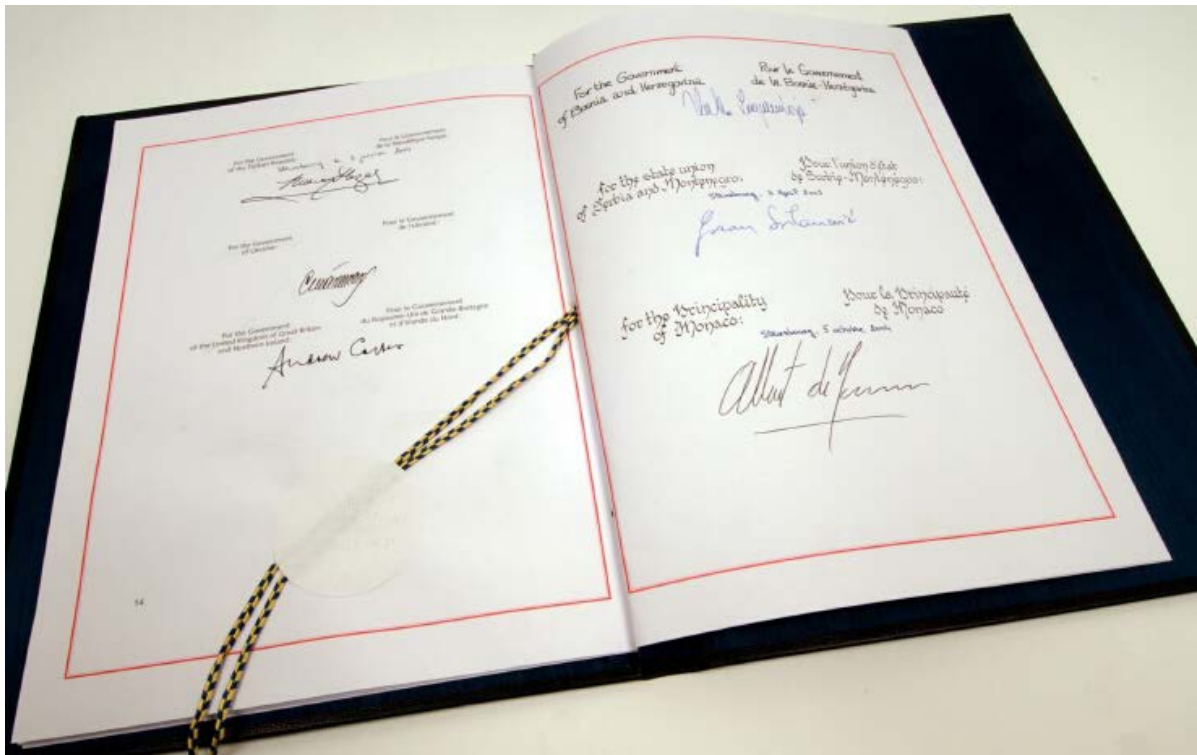 For the Government
of the Turkish Republic:
Pour le Gouvernement
de la République turque:
Strasbourg
For the Government
of Ukraine:
Pour le Gouvernement
de l'Ukraine:
For the Government
of the United Kingdom of Great Britain
and Northern Ireland:
Pour le Gouvernement
du Royaume-Uni de Grande-Bretagne
et d'Irlande du Nord:
Andrew Carter
14
For the Government
of Bosnia and Herzegovina
Pour le Gouvernement
de la Bosnie-Herzégovine
for the state union
of Serbia and Montenegro:
Pour l'union d'état
de Serbie-Monténégro:
Strasbourg, 3 April 2003
Goran Svilanović
for the Principality
of Monaco:
Pour la Principauté
de Monaco
Strasbourg, 5 octobre 2004
Albert de Monaco